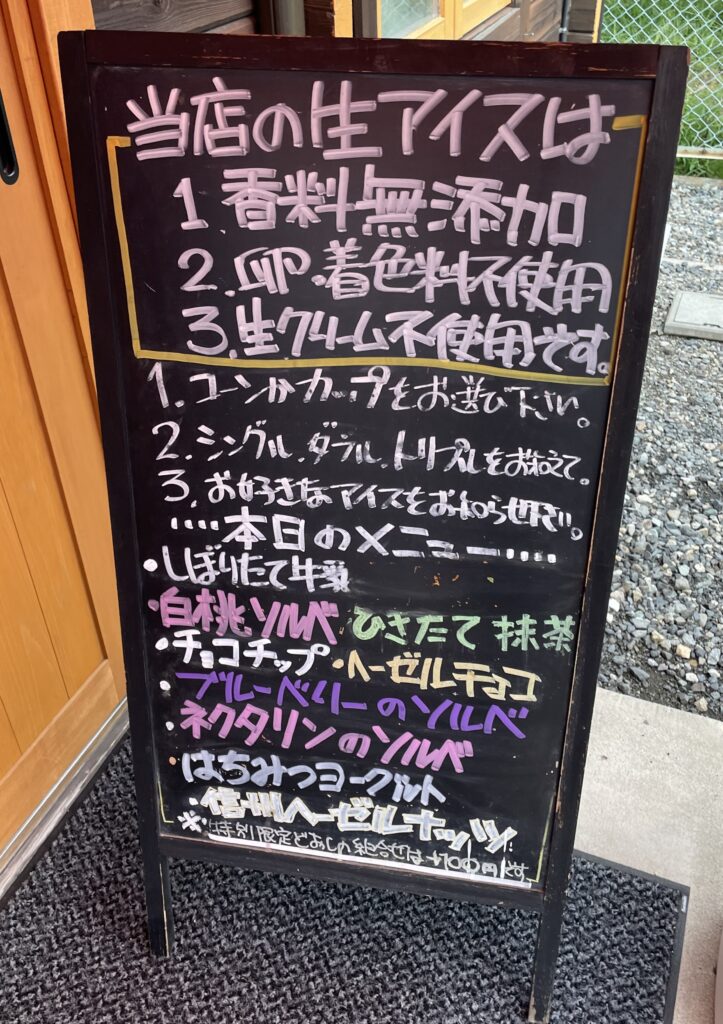 当店の生アイスは
1.香料無添加
2.卵・着色料不使用
3.生クリーム不使用です。
1.コーンかカップをお選び下さい。
2.シングル、ダブル、トリプルをお伝えて。
3.お好きなアイスをお知らせ下さい。
....本日のメニュー....
・しぼりたて牛乳
・白桃ソルベ ・ひきたて抹茶
・チョコチップ ・ヘーゼルチョコ
・ブルーベリーのソルベ
・ネクタリンのソルベ
・はちみつヨーグルト
・信州ヘーゼルナッツ
※特別限定どおしの組合せは+100円です。